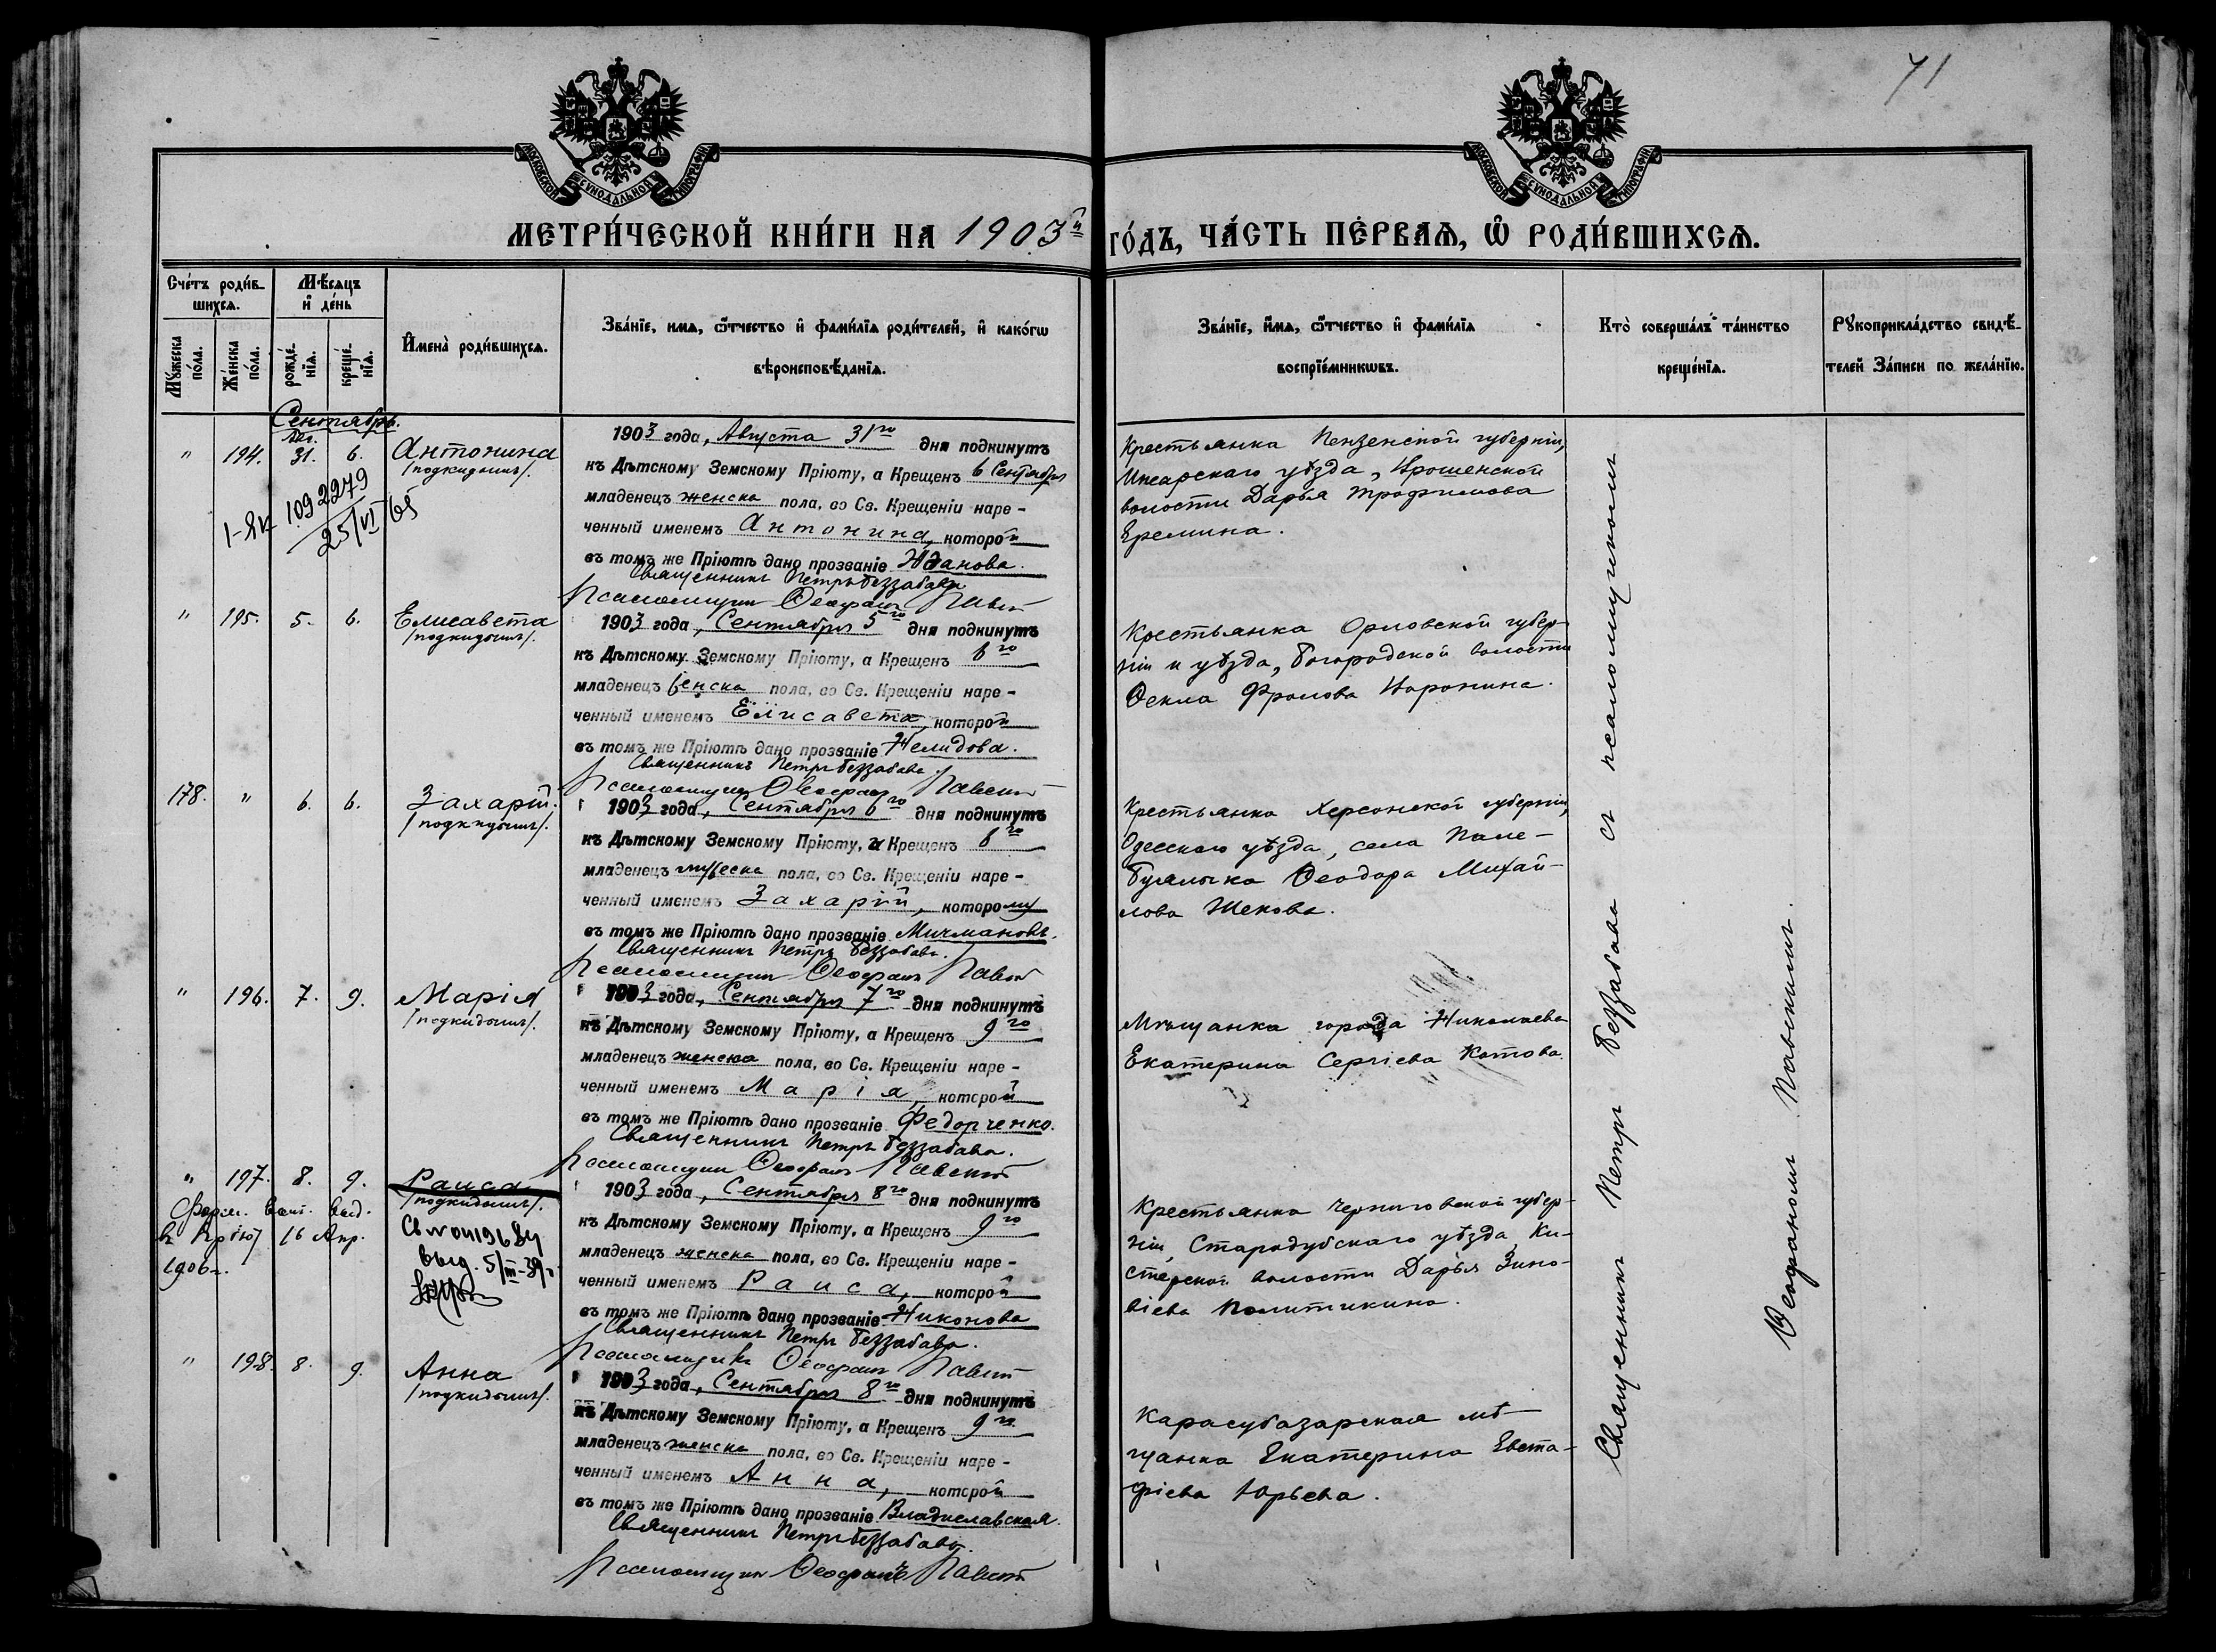 71
МОСКОВСКОЙ СУНОДАЛЬНОЙ ТИПОГРАФІИ
МОСКОВСКОЙ СУНОДАЛЬНОЙ ТИПОГРАФІИ
МЕТРИ́ЧЕСКОЙ КНИ́ГИ НА 1903й ГО́ДЪ, ЧА́СТЬ ПЕ́РВАѦ, Ѡ҆ РОДИ́ВШИХСѦ.
Сче́тъ роди́в-
шихсѧ.
Мѣ́сяцъ
и҆ де́нь
Му́жеска по́ла.
Же́нска по́ла.
рожде́нїѧ.
креще́нїѧ.
И҆мена̀ роди́вшихсѧ.
Зва́нїе, и҆мѧ, ѻ҆́тчество и҆ фами́лїѧ роди́телей, и҆ како́гѡ
вѣроисповѣ́данїѧ.
Зва́нїе, и҆́мѧ, ѻ҆́тчество и҆ фами́лїѧ
воспрїе́мникѡвъ.
Кто̀ соверша́лъ та́инство
креще́нїѧ.
Рꙋкоприкла́дство свидѣ́-
телей за́писи по жела́нїю.
Сентябрь.
" 194. Авг. 31. 6. Антонина
/подкидышъ/.
1092279
25/VI 65
1903 года, Августа 31го дня подкинутъ
къ Дѣтскому Земскому Пріюту, а Крещенъ 6 Сентября
младенецъ женска пола, во Св. Крещеніи наре-
ченный именемъ Антонина, которой
въ томъ же Пріютѣ дано прозваніе Жданова.
Священникъ Петръ Беззабава
Псаломщикъ Ѳеофанъ Павскій
Крестьянка Пензенской губерніи,
Инсарскаго уѣзда, Ярошенской
волости Дарья Трофимова
Еремина.
" 195. 5. 6. Елисавета
/подкидышъ/.
1903 года, Сентября 5го дня подкинутъ
къ Дѣтскому Земскому Пріюту, а Крещенъ 6го
младенецъ женска пола, во Св. Крещеніи наре-
ченный именемъ Елисавета, которой
въ томъ же Пріютѣ дано прозваніе Нелидова.
Священникъ Петръ Беззабава.
Псаломщикъ Ѳеофанъ Павскій
Крестьянка Орловской губер-
ніи и уѣзда, Богородской волости
Ѳекла Фролова Воронина.
178. " 6. 6. Захарій.
/подкидышъ/.
1903 года, Сентября 6го дня подкинутъ
къ Дѣтскому Земскому Пріюту, а Крещенъ 6го
младенецъ мужеска пола, во Св. Крещеніи наре-
ченный именемъ Захарій, которому
въ томъ же Пріютѣ дано прозваніе Мичмановъ.
Священникъ Петръ Беззабава.
Псаломщикъ Ѳеофанъ Павскій
Крестьянка Херсонской губерніи,
Одесскаго уѣзда, села Пале-
Буялыка Ѳеодора Михай-
лова Жекова.
" 196. 7. 9. Марія
/подкидышъ/.
1903 года, Сентября 7го дня подкинутъ
къ Дѣтскому Земскому Пріюту, а Крещенъ 9го
младенецъ женска пола, во Св. Крещеніи наре-
ченный именемъ Марія, которой
въ томъ же Пріютѣ дано прозваніе Федорченко.
Священникъ Петръ Беззабава.
Псаломщикъ Ѳеофанъ Павскій
Мѣщанка города Николаева
Екатерина Сергіева Котова.
" 197. 8. 9. Раиса
/подкидышъ/.
16 Апр.
1906 г.
выд. 5/III-39
1903 года, Сентября 8го дня подкинутъ
къ Дѣтскому Земскому Пріюту, а Крещенъ 9го
младенецъ женска пола, во Св. Крещеніи наре-
ченный именемъ Раиса, которой
въ томъ же Пріютѣ дано прозваніе Никонова
Священникъ Петръ Беззабава.
Псаломщикъ Ѳеофанъ Павскій
Крестьянка Черниговской губер-
ніи, Стародубскаго уѣзда, Ки-
стерской волости Дарья Зино-
віева Политикина.
" 198. 8. 9. Анна
/подкидышъ/.
1903 года, Сентября 8го дня подкинутъ
къ Дѣтскому Земскому Пріюту, а Крещенъ 9го
младенецъ женска пола, во Св. Крещеніи наре-
ченный именемъ Анна, которой
въ томъ же Пріютѣ дано прозваніе Владиславская.
Священникъ Петръ Беззабава.
Псаломщикъ Ѳеофанъ Павскій
Карасубазарская мѣ-
щанка Екатерина Евста-
фіева Юрьева.
Священникъ Петръ Беззабава съ псаломщикомъ
Ѳеофаномъ Павскимъ.